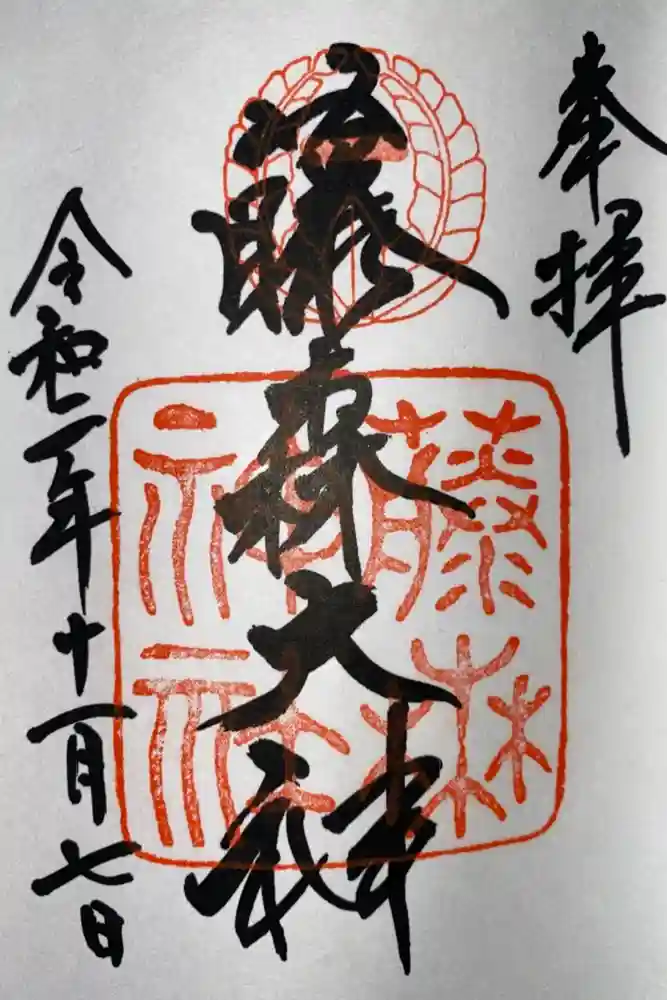 奉拝
藤森大神
藤森神社
令和二年十一月七日